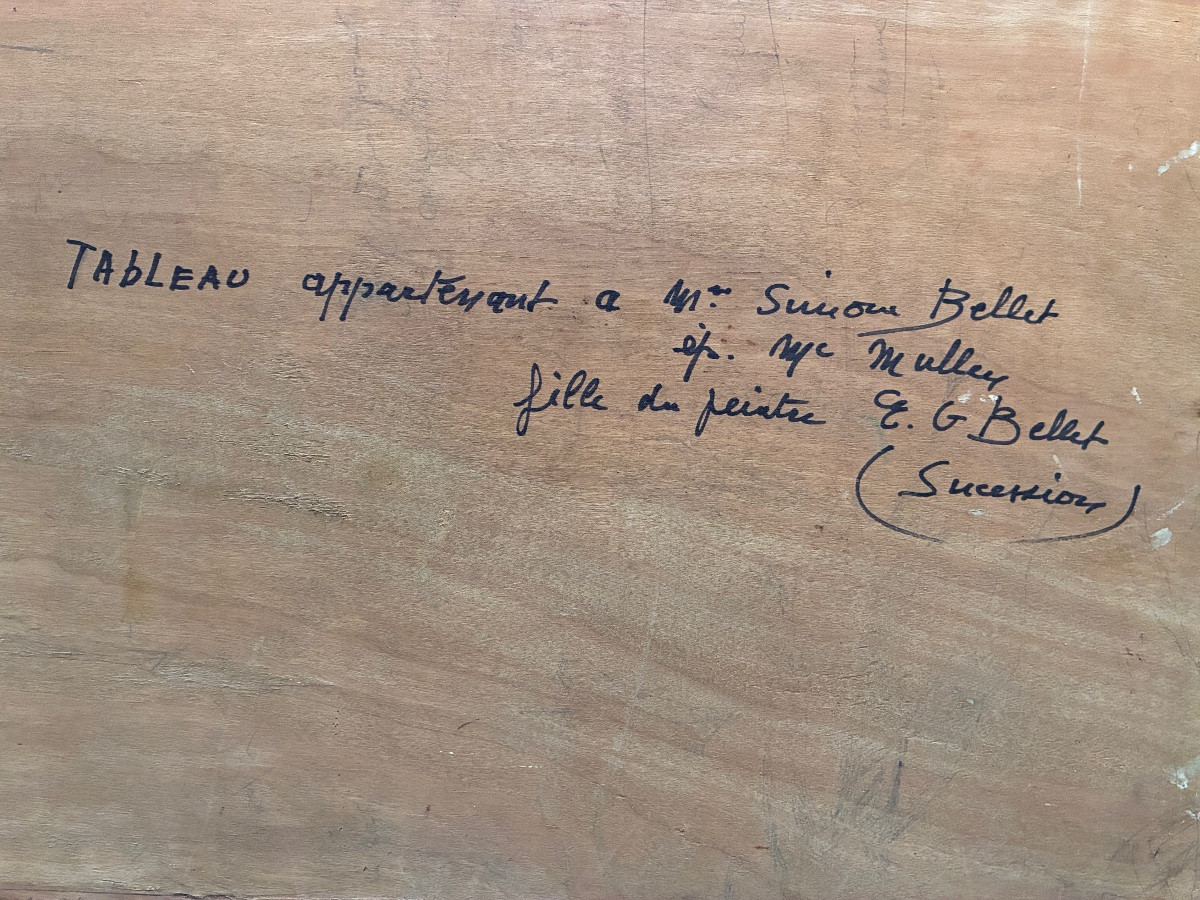 TAbLEAU appartenant a Mme Simone Bellet
ép. Mc Mullen
fille du peintre E. G Bellet
(Sucession)